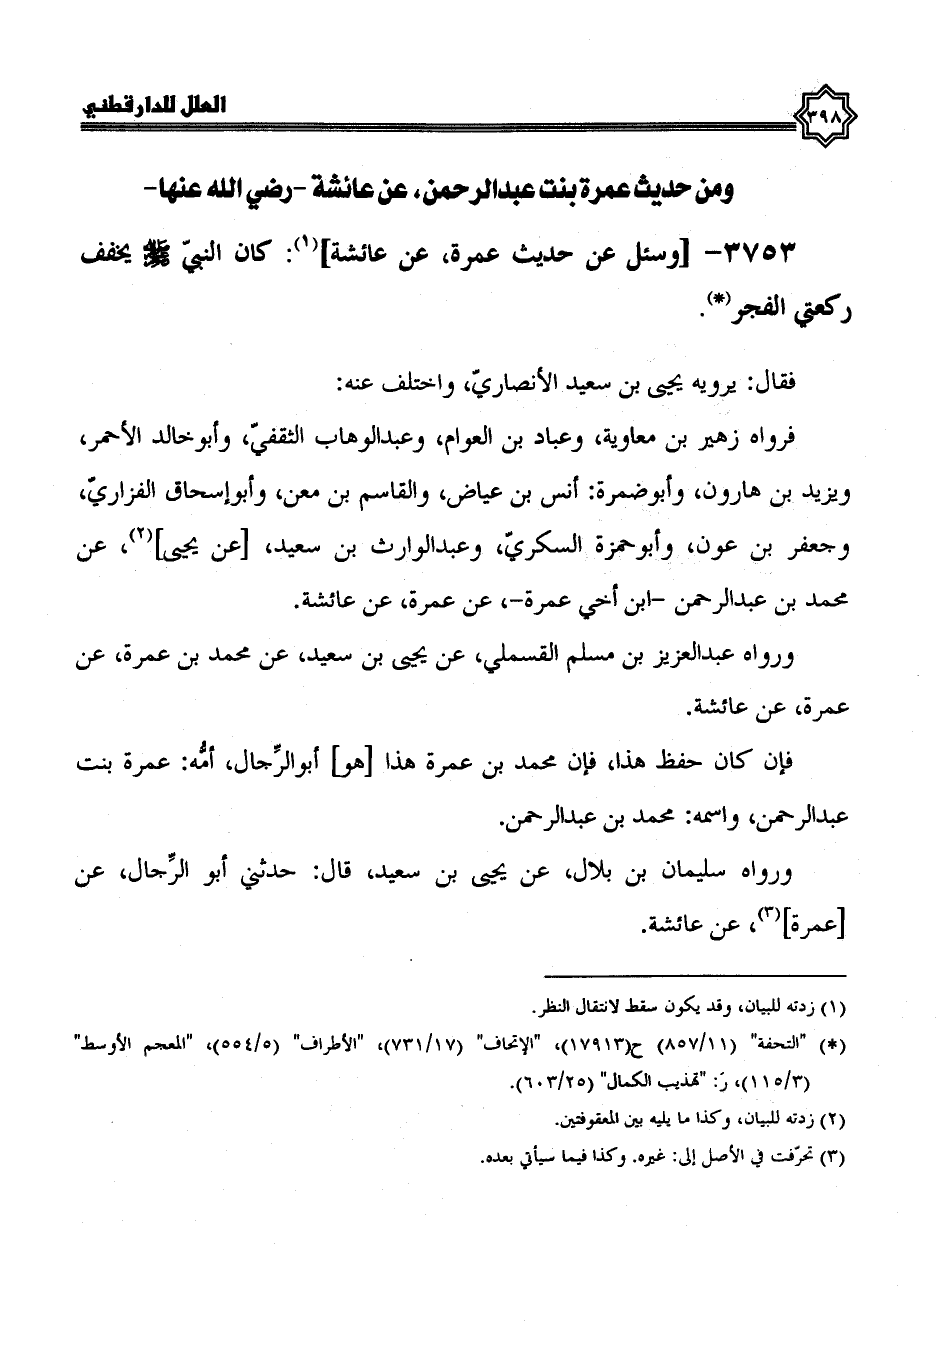 العلل للدارقطني
٣٩٨
ومن حديث عمرة بنت عبدالرحمن، عن عائشة -رضي الله عنها-
٣٧٥٣- [وسئل عن حديث عمرة، عن عائشة](١): كان النبيّ ﷺ يخفف
ركعتي الفجر(*).
فقال: يرويه يحيى بن سعيد الأنصاريّ، واختلف عنه:
فرواه زهير بن معاوية، وعباد بن العوام، وعبدالوهاب الثقفيّ، وأبوخالد الأحمر،
ويزيد بن هارون، وأبوضمرة: أنس بن عياض، والقاسم بن معن، وأبوإسحاق الفزاريّ،
وجعفر بن عون، وأبوحمزة السكريّ، وعبدالوارث بن سعيد، [عن يحيى](٢)، عن
محمد بن عبدالرحمن -ابن أخي عمرة-، عن عمرة، عن عائشة.
ورواه عبدالعزيز بن مسلم القسملي، عن يحيى بن سعيد، عن محمد بن عمرة، عن
عمرة، عن عائشة.
فإن كان حفظ هذا، فإن محمد بن عمرة هذا [هو] أبوالرِّجال، أمُّه: عمرة بنت
عبدالرحمن، واسمه: محمد بن عبدالرحمن.
ورواه سليمان بن بلال، عن يحيى بن سعيد، قال: حدثني أبو الرِّجال، عن
[عمرة](٣)، عن عائشة.
(١) زدته للبيان، وقد يكون سقط لانتقال النظر.
(*) "التحفة" (٨٥٧/١١) ح(١٧٩١٣)، "الإتحاف" (٧٣١/١٧)، "الأطراف" (٥٥٤/٥)، "المعجم الأوسط"
(١١٥/٣)، رَ: "تهذيب الكمال" (٦٠٣/٢٥).
(٢) زدته للبيان، وكذا ما يليه بين المعقوفتين.
(٣) تحرّفت في الأصل إلى: غيره. وكذا فيما سيأتي بعده.